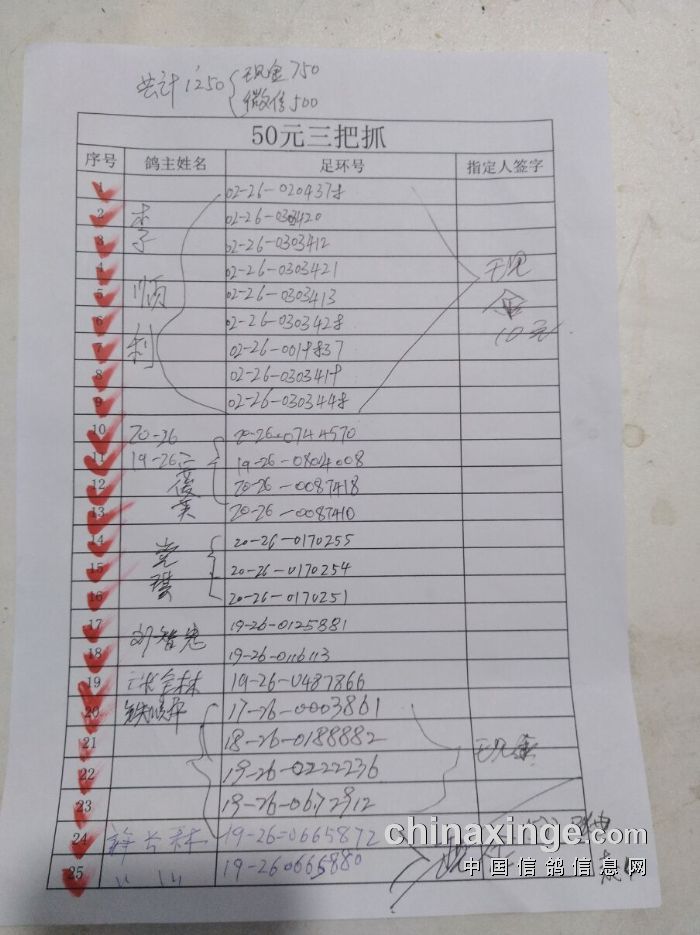 共计1250 现金750
微信500
50元三把抓
序号 鸽主姓名 足环号 指定人签字
1 02-26-0204378
2 李 02-26-0303420
3 子 02-26-0303412
4 02-26-0303421 现
5 顺 02-26-0303413 金
6 02-26-0303428 10元
7 利 02-26-0019837
8 02-26-0303419
9 02-26-0303448
10 20-26 20-26-0744570
11 19-26 19-26-0804008
12 20-26-0087418
13 英 20-26-0087410
14 党 20-26-0170255
15 琪 20-26-0170254
16 20-26-0170251
17 19-26-0125881
18 刘智 19-26-0116113
19 张全林 19-26-0487866
20 17-26-0003861
21 18-26-0188882 现金
22 19-26-0222236
23 19-26-0672912
24 林 19-26-0665872
25 19-260666880 现
chinaxinge.com
中国信鸽信息网